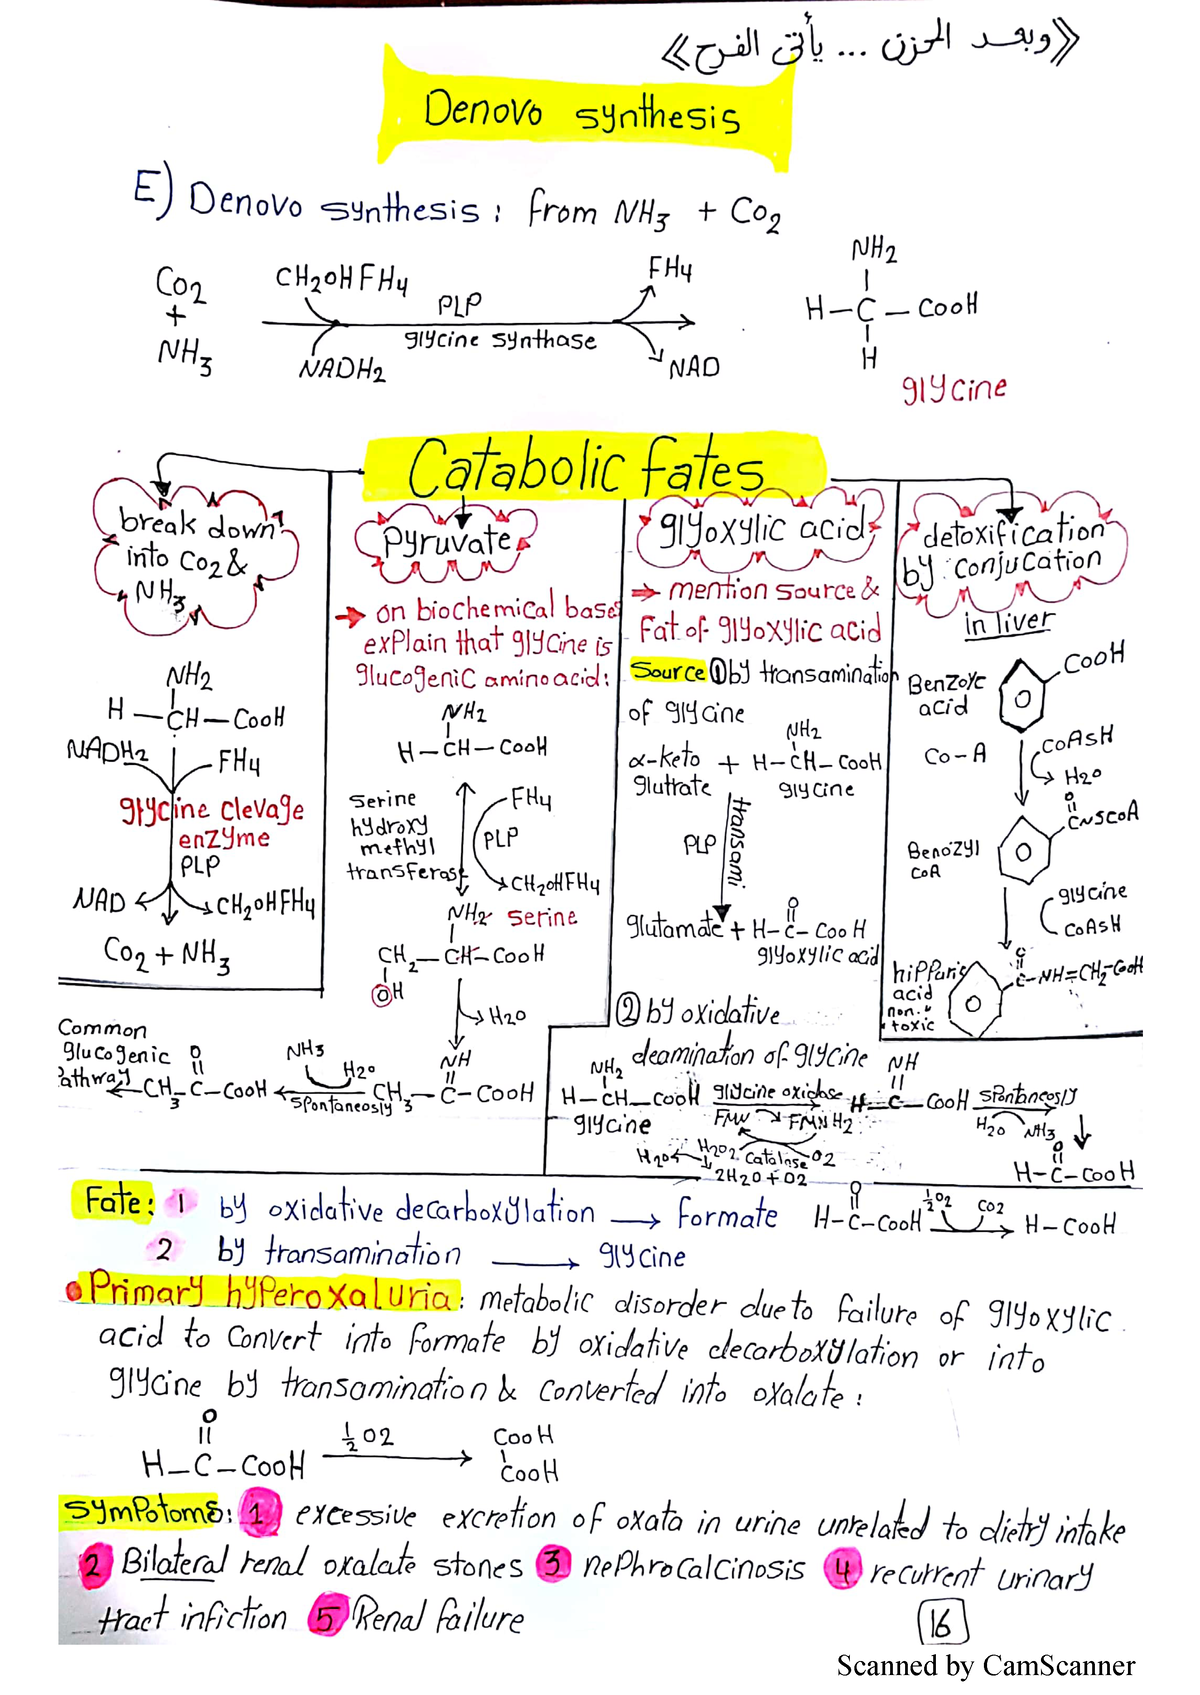 《وبعد الحزن ... يأتى الفرح》
Denovo synthesis
E) Denovo synthesis: from NH3 + Co2
Co2
+
NH3
CH2OHFH4
NADH2
PLP
glycine synthase
FH4
NAD
NH2
H—C—COOH
H
glycine
Catabolic fates
break down
into Co2 &
NH3
NH2
H—CH—COOH
NADH2
FH4
glycine clevage
enzyme
PLP
NAD
CH2OHFH4
Co2 + NH3
Pyruvate
→ on biochemical bases
explain that glycine is
glucogenic amino acid:
NH2
H—CH—COOH
Serine
hydroxy
methyl
transferase
FH4
PLP
CH2OHFH4
NH2 serine
CH2—CH—COOH
OH
H2O
NH
CH3—C—COOH
NH3
H2O
spontaneosly
O
CH3—C—COOH
Common
glucogenic
Pathway
glyoxylic acid
→ mention source &
Fat of glyoxylic acid
Source ① by transamination
of glycine
NH2
α-keto + H—CH—COOH
glutrate glycine
PLP
transami
O
glutamate + H—C—COOH
glyoxylic acid
② by oxidative
deamination of glycine
NH2
H—CH—COOH
glycine
glycine oxidase
FMN FMNH2
H2O2 catalase O2
H2O2
2H2O + O2
NH
H—C—COOH
spontaneosly
H2O NH3
O
H—C—COOH
detoxification
by conjucation
in liver
Benzoyc
acid
COOH
Co-A
CoASH
H2O
O
C~SCoA
Benozyl
CoA
glycine
CoASH
hippuric
acid
non.
toxic
O
C—NH=CH2—COOH
Fate: 1 by oxidative decarboxylation → formate
O
H—C—COOH
½O2 CO2
H—COOH
2 by transamination → glycine
Primary hyperoxaluria: metabolic disorder due to failure of glyoxylic
acid to convert into formate by oxidative decarboxylation or into
glycine by transamination & converted into oxalate:
O
H—C—COOH
½O2
COOH
COOH
Sympotoms: 1 excessive excretion of oxata in urine unrelated to dietry intake
2 Bilateral renal oxalate stones 3 nephrocalcinosis 4 recurrent urinary
tract infiction 5 Renal failure
16
Scanned by CamScanner